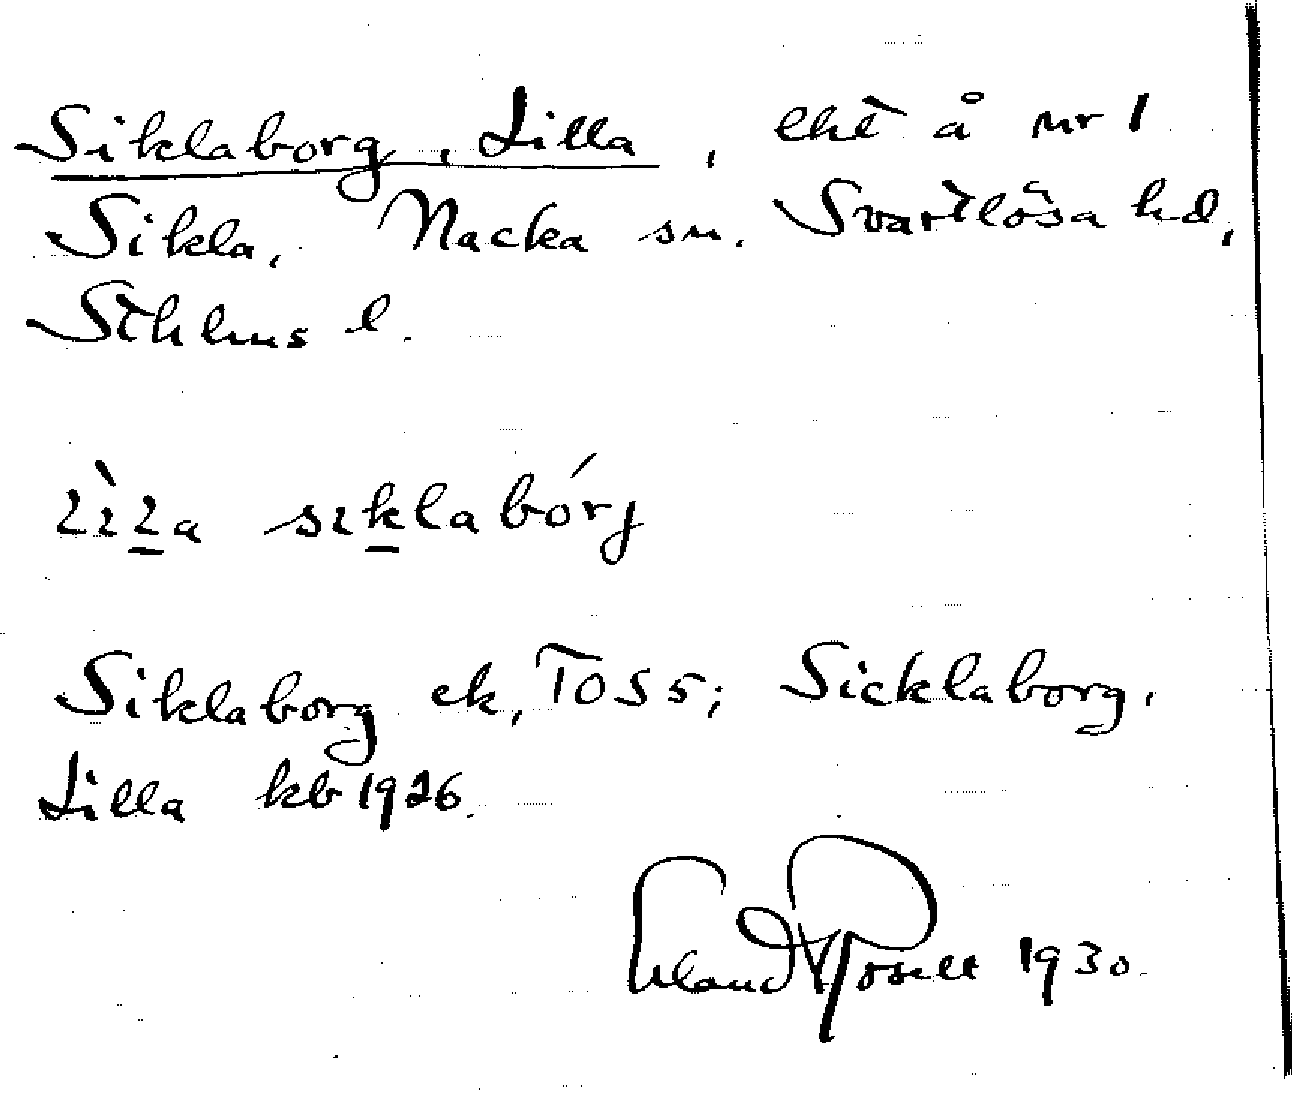 Siklaborg, Lilla, lht å nr 1
Sikla, Nacka sn. Svartlösa hd,
Sthlms l.
lìla sıklabórg
Siklaborg ek, TOS5; Sicklaborg,
Lilla kb 1926.
Erland Rosell 1930.